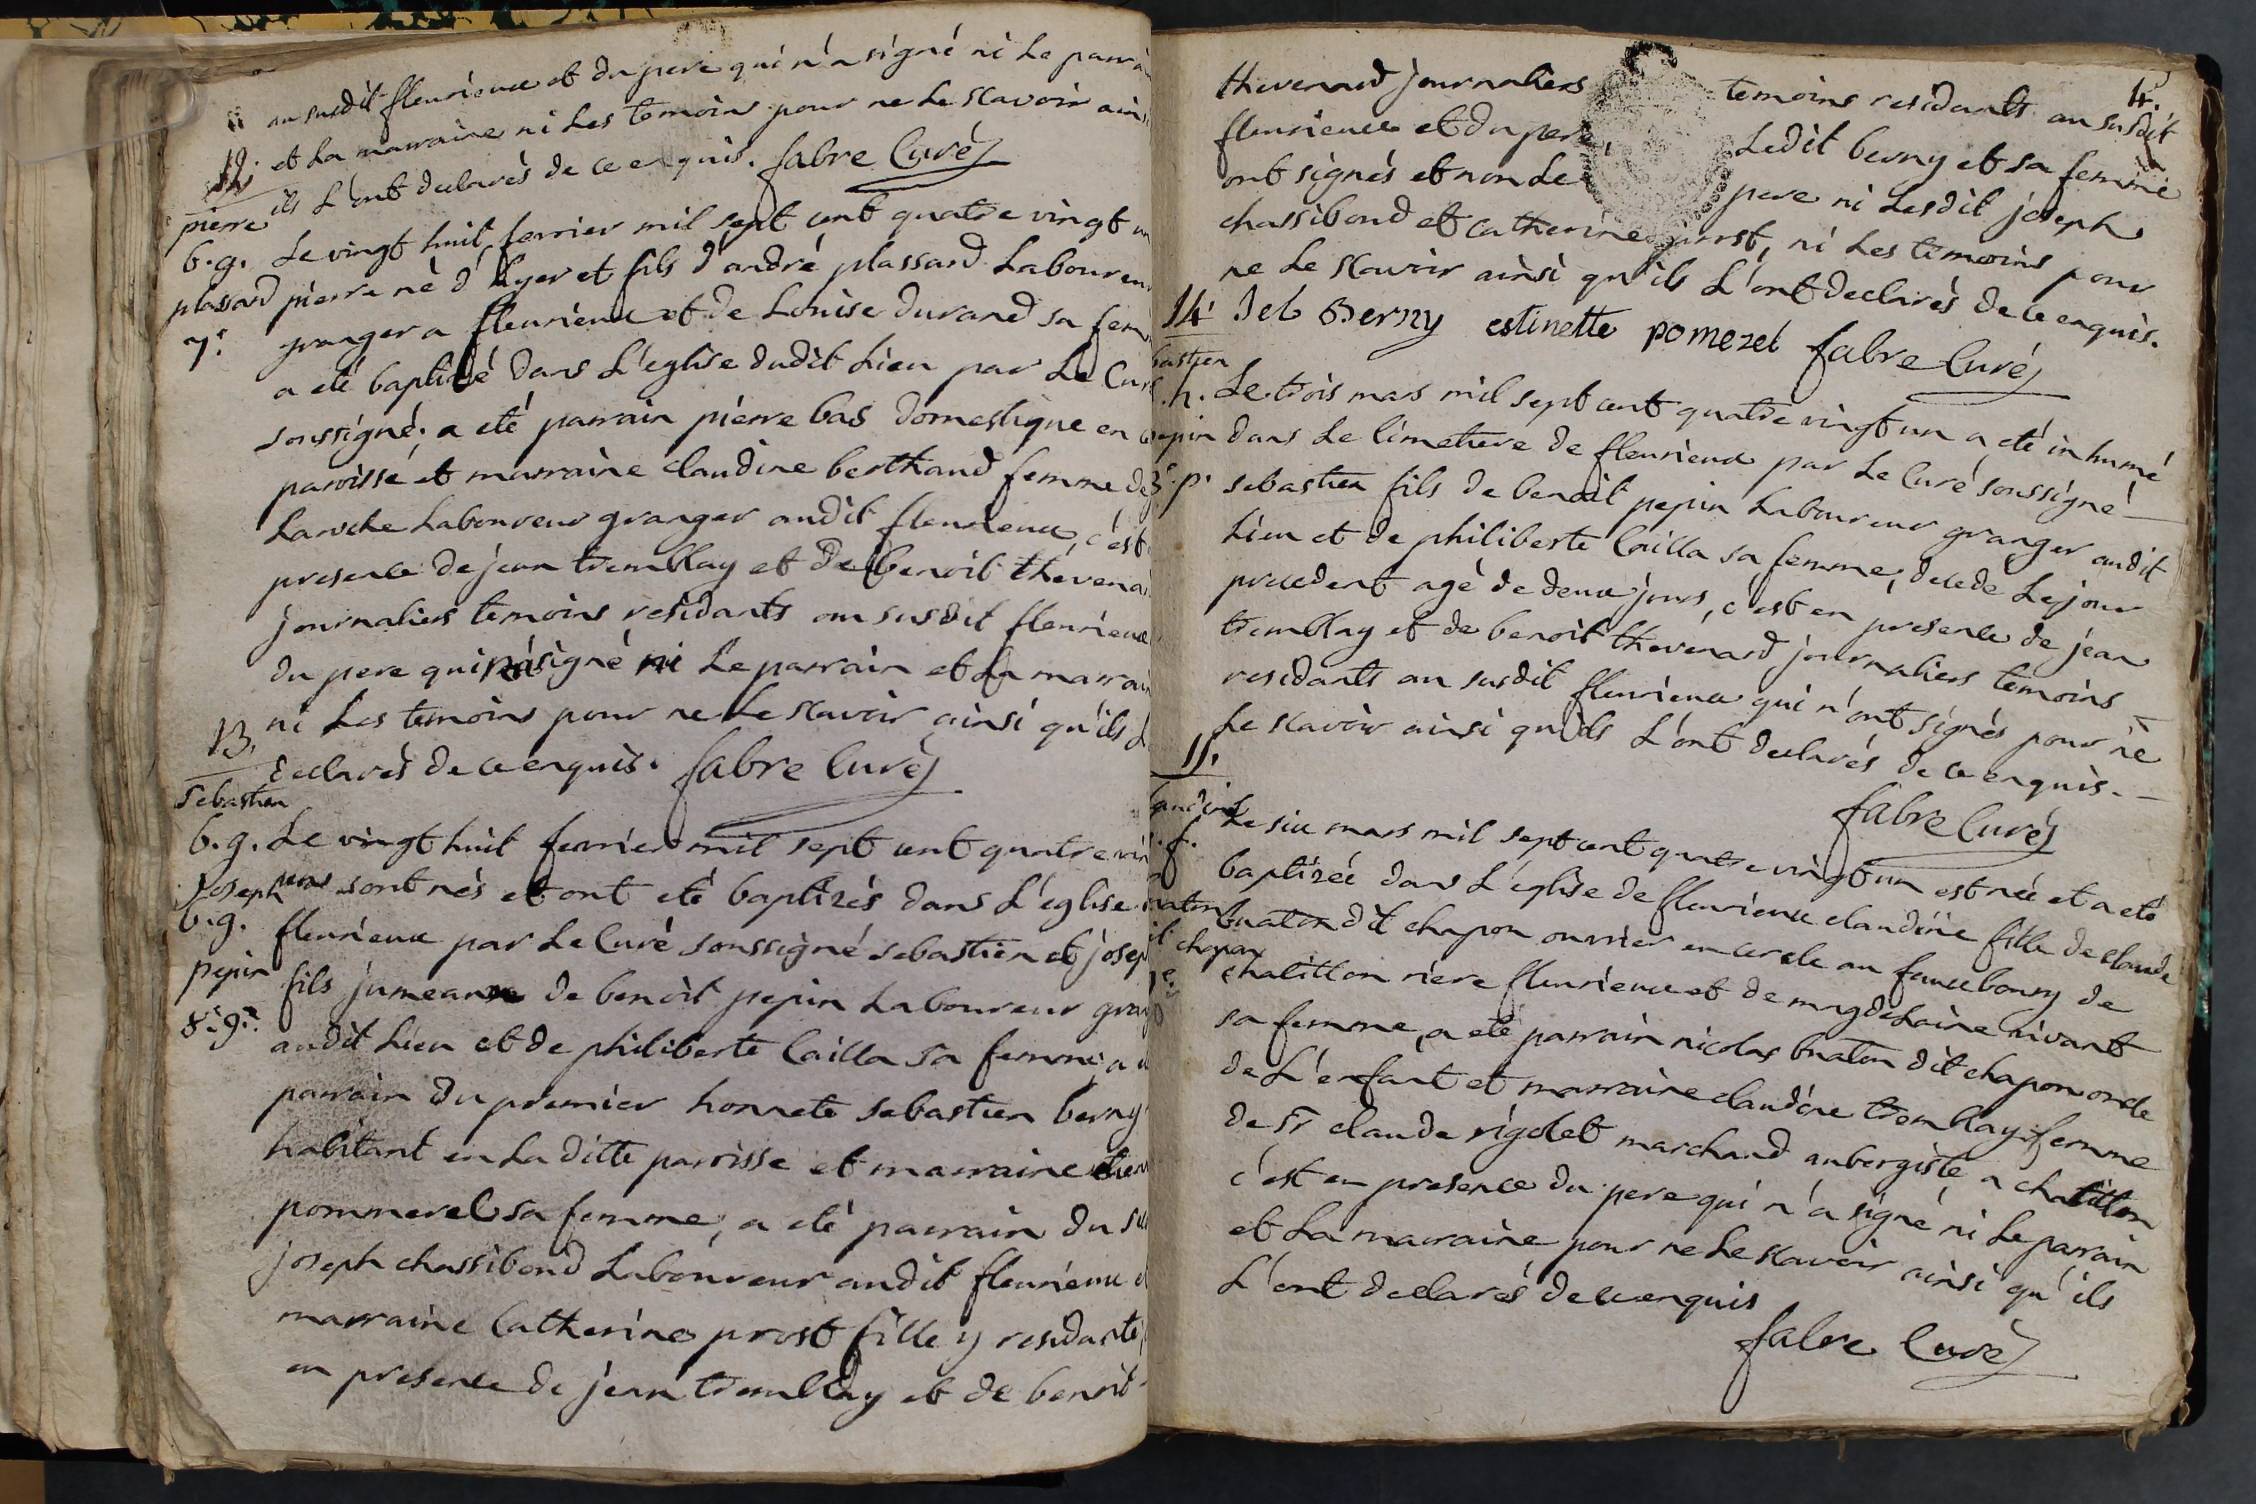 au susdit fleurieux et du pere qui n'a signé ni Le parrai
12. et La marraine ni Les temoins pour ne Le scavoir ainsi
ils L'ont declarés de ce enquis. fabre Curé
pierre
b.g. Le vingt huit fevrier mil sept cent quatre vingt un
plassard pierre né d'hyer et fils d'andré plassard Laboureur
7e. granger a fleurieux et de Louise durand sa fem
a eté baptizé dans L'eglise dudit Lieu par Le Curé
soussigné; a eté parrain pierre bas domestique en
paroisse et marraine claudine berthaud femme de
Laroche Laboureur granger audit fleurieux, c'est
presence de jean tremblay et de benoit thevena
journaliers temoins residants au susdit fleurieux
du pere qui n'a signé ni Le parrain et La marrai
ni Les temoins pour ne Le scavoir ainsi qu'ils L
13. declarés de ce enquis. fabre Curé
Sebastien
b.g. Le vingt huit fevrier mil sept cent quatre vin
Joseph sont nés et ont eté baptizés dans L'eglise
b.g. fleurieux par Le Curé soussigné sebastien et josep
pepin fils jumeaux de benoit pepin Laboureur gran
8e. 9e. audit Lieu et de philiberte Cailla sa femme, a
parrain du premier honnete sebastien berny
habitant en La ditte paroisse et marraine
pommerel sa femme, a eté parrain du
joseph chassibond Laboureur audit fleurieux
marraine Catherine prost fille y residante,
en presence de jean tremblay et de benoit
4.
thevenard journaliers temoins residants au susdit
fleurieux et du pere, Ledit berny et sa femme
ont signés et non Le pere ni Lesdit joseph
chassibond et catherine prost, ni Les temoins pour
ne Le scavoir ainsi qu'ils L'ont declarés de ce enquis.
14. Seb Berny estinette pomezel fabre Curé
bastien
.h. Le trois mars mil sept cent quatre vingt un a eté inhumé
pepin dans Le Cimetiere de fleurieux par Le Curé soussigné
3e. p. sebastien fils de benoit pepin Laboureur granger audit
Lieu et de philiberte Cailla sa femme, decede Le jour
precedent agé de deux jours, c'est en presence de jean
tremblay et de benoit thevenard journaliers temoins
residants au susdit fleurieux qui n'ont signés pour ne
Le scavoir ainsi qu'ils L'ont declarés de ce enquis.
15. fabre Curé
laudine Le six mars mil sept cent quatre vingt un est née et a eté
.f. baptizée dans L'eglise de fleurieux claudine fille de claude
naton buaton dit chapon ouvrier en cercle au fauxbourg de
it chapon chatillon riere fleurieux et de magdelaine nivant
sa femme, a eté parrain nicolas buaton dit chapon oncle
de L'enfant et marraine claudine tremblay femme
de Sr claude rigolet marchand aubergiste a chatillon
c'est en presence du pere qui n'a signé ni Le parrain
et La marraine pour ne Le scavoir ainsi qu'ils
L'ont declarés de ce enquis
fabre Curé